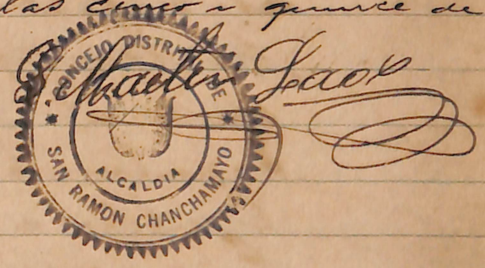 las cinco i quince de
Martin
CONCEJO DISTRITAL DE
SAN RAMON CHANCHAMAYO
ALCALDIA